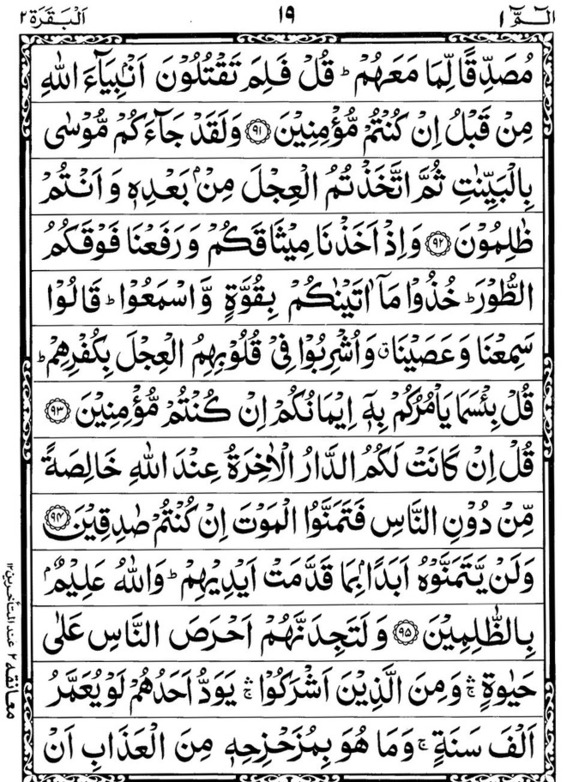 الٓمّٓ ١
١٩
اَلْبَقَرَة ٢
مُصَدِّقًا لِّمَا مَعَهُمْ ؕ قُلْ فَلِمَ تَقْتُلُوْنَ اَنْۢبِيَآءَ اللّٰهِ
مِنْ قَبْلُ اِنْ كُنْتُمْ مُّؤْمِنِيْنَ ﴿٩١﴾ وَلَقَدْ جَآءَكُمْ مُّوْسٰى
بِالْبَيِّنٰتِ ثُمَّ اتَّخَذْتُمُ الْعِجْلَ مِنْۢ بَعْدِهٖ وَاَنْتُمْ
ظٰلِمُوْنَ ﴿٩٢﴾ وَاِذْ اَخَذْنَا مِيْثَاقَكُمْ وَرَفَعْنَا فَوْقَكُمُ
الطُّوْرَ ؕ خُذُوْا مَاۤ اٰتَيْنٰكُمْ بِقُوَّةٍ وَّاسْمَعُوْا ؕ قَالُوْا
سَمِعْنَا وَعَصَيْنَا ۗ وَاُشْرِبُوْا فِيْ قُلُوْبِهِمُ الْعِجْلَ بِكُفْرِهِمْ ؕ
قُلْ بِئْسَمَا يَاْمُرُكُمْ بِهٖۤ اِيْمَانُكُمْ اِنْ كُنْتُمْ مُّؤْمِنِيْنَ ﴿٩٣﴾
قُلْ اِنْ كَانَتْ لَكُمُ الدَّارُ الْاٰخِرَةُ عِنْدَ اللّٰهِ خَالِصَةً
مِّنْ دُوْنِ النَّاسِ فَتَمَنَّوُا الْمَوْتَ اِنْ كُنْتُمْ صٰدِقِيْنَ ﴿٩٤﴾
وَلَنْ يَّتَمَنَّوْهُ اَبَدًۢا بِمَا قَدَّمَتْ اَيْدِيْهِمْ ؕ وَاللّٰهُ عَلِيْمٌۢ
بِالظّٰلِمِيْنَ ﴿٩٥﴾ وَلَتَجِدَنَّهُمْ اَحْرَصَ النَّاسِ عَلٰى
حَيٰوةٍ ۛۚ وَمِنَ الَّذِيْنَ اَشْرَكُوْا ۛۚ يَوَدُّ اَحَدُهُمْ لَوْ يُعَمَّرُ
اَلْفَ سَنَةٍ ۚ وَمَا هُوَ بِمُزَحْزِحِهٖ مِنَ الْعَذَابِ اَنْ
معانقه ٢ عند المتأخرين ١٢